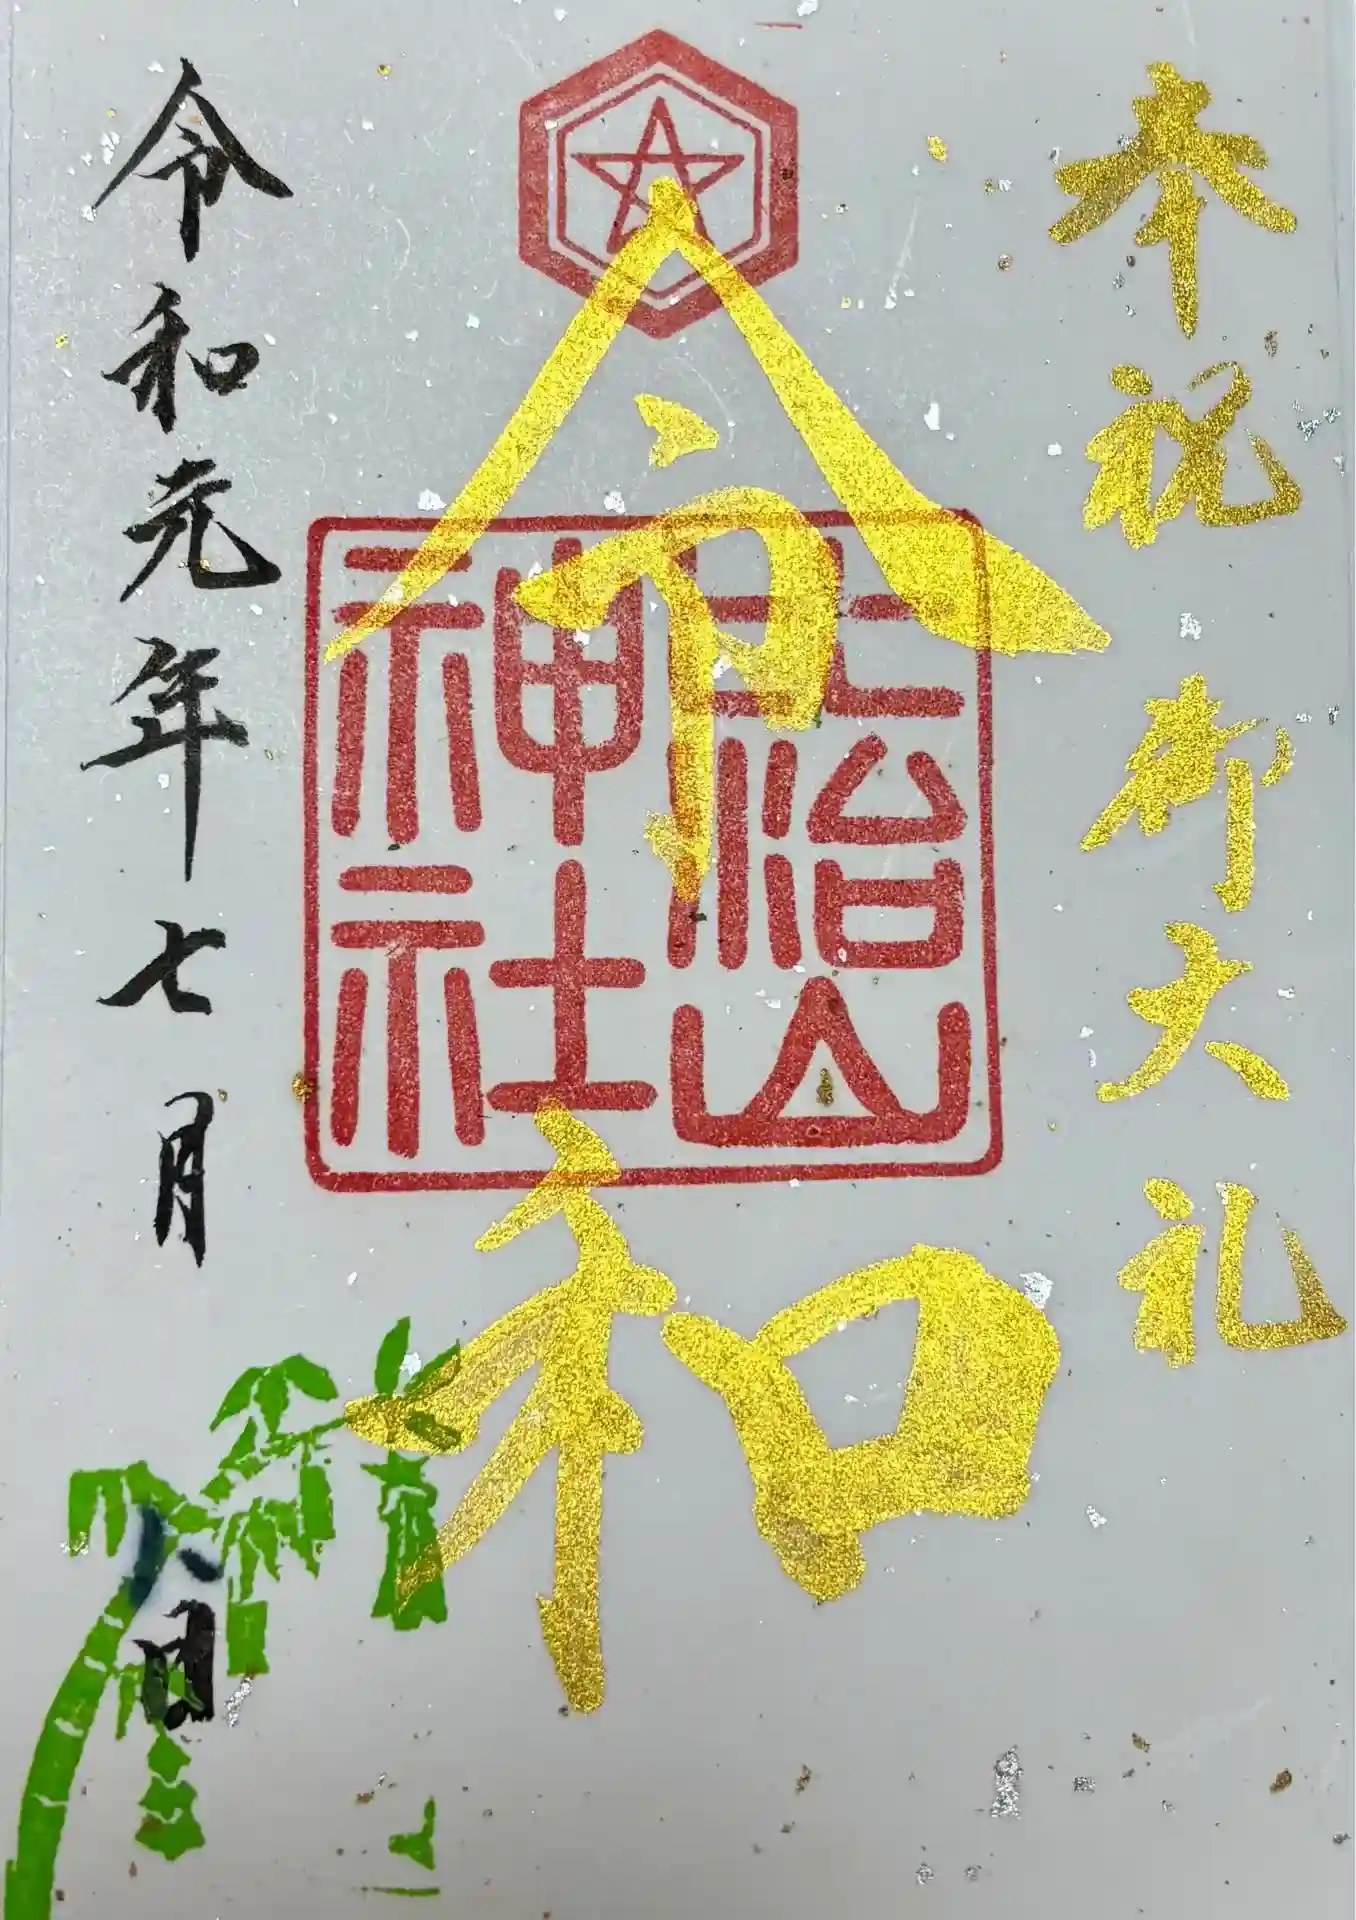 奉祝御大礼
令和
比治山
神社
令和元年七月八日